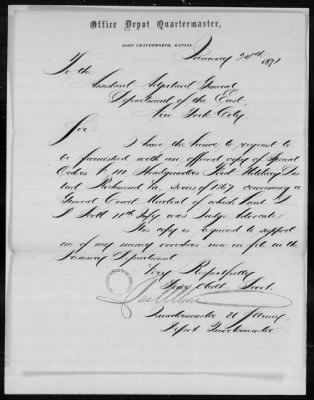 Office Depot Quartermaster,
FORT LEAVENWORTH, KANSAS,
January 30th 1871
To the
Assistant Adjutant General
Department of the East,
New York City
Sir
I have the honor to request to
be furnished with an official copy of Special
Orders No 111 Headquarters First Military Dis
trict Richmond Va, series of 1867 convening a
General Court Martial of which Lieut
11th Infy was Judge Advocate
This copy is required to support
one of my money vouchers now on file in the
Treasury Department
Very Respectfully
Your Obdt Servt.
Quartermaster U S Army
Depot Quartermaster